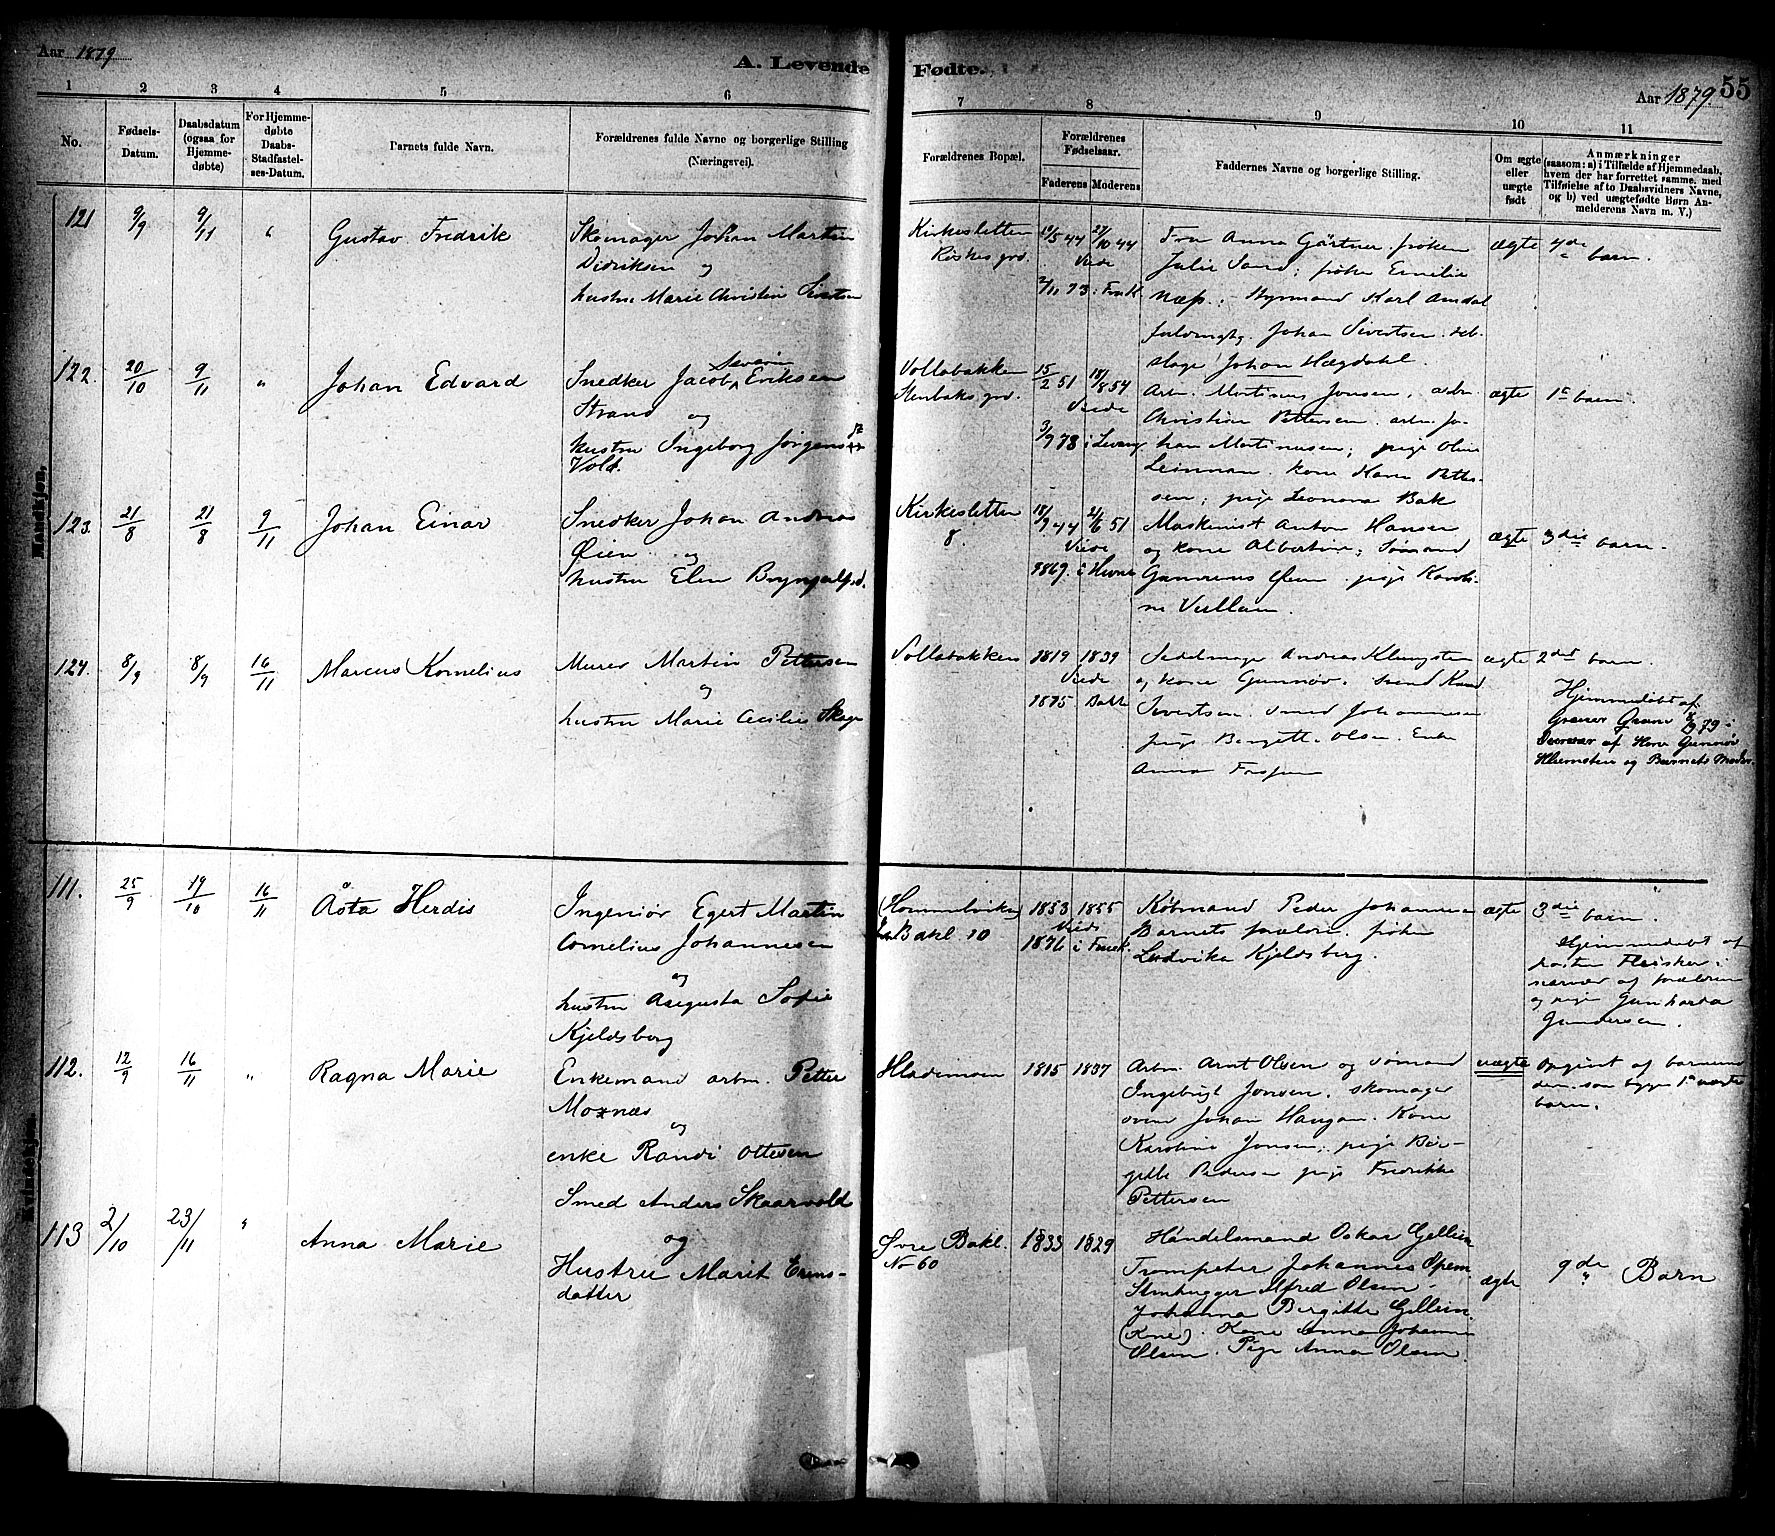 Aar 1879
A. Levende Fødte.
Aar 1879
55
1 2 3 4 5 6 7 8 9 10 11
No.
Fødsels-
Datum.
Daabsdatum
(ogsaa for
Hjemme-
døbte)
For Hjemme-
døbte
Daabs-
Stadfæstel-
ses-Datum.
Barnets fulde Navn.
Forældrenes fulde Navne og borgerlige Stilling
(Næringsvei).
Forældrenes Bopæl.
Forældrenes
Fødselsaar.
Faderens Moderens
Faddernes Navne og borgerlige Stilling.
Om ægte
eller
uægte
født
Anmærkninger
(saasom: a) i Tilfælde af Hjemmedaab,
hvem der har forrettet samme, med
Tilføielse af to Daabsvidners Navne,
og b) ved uægtefødte Børn An-
melderens Navn m. V.)
Mandkjøn.
121 9/9 9/11 " Gustav Fredrik
Skomager Johan Martin
Didriksen og
hustru Marie Christin
Kirkesletten
19/5 44 27/10 44
Viede
2/11 73
Fru Anna Gärtner, frøken
Julie Sand; frøken Emilie
Næss; Styrmand Karl Amdal
Johan Sivertsen
Johan Hægdahl.
ægte
4de barn.
122. 20/10 9/11 " Johan Edvard
Snedker Jacob Severin Eriksen
Strand og
hustru Ingeborg Jørgens
Vold.
Vollabakken
Stenbaks grd.
15/2 51 18/8 54
Viede
3/9 78 i Levang
Arb. Mortinus Jonsen, arb.
Christian Pettersen. arb. Jo-
han Martinusen; pige Oline
Leinman. kone Karen Petter-
sen; pige Leonora Bak
ægte
1ste barn.
123. 21/8 21/8 9/11 Johan Einar
Snedker Johan Andreas
Øien og
hustru Elen Bryngelsd.
Kirkesletten
8.
18/9 44 2/6 51
Viede
1869. i Hevne
Maskinist Anton Hansen
og kone Albertine; Sømand
Øien pige Karoli-
ne Vullan.
ægte
3die barn.
124. 8/9 8/9 16/11 Marcus Kornelius
Murer Martin Pettersen
og
hustru Marie Cecilie Skage
Vollabakken
1819 1839
Viede
1875 Bakke
Sadelmager Andreas Klungsten
og kone Gunnør.
Sivertsen. Smed Johannesen
pige Bergitte Olsen. Enke
Anna
ægte
2det barn.
Hjemmedøbt af
Graver Gram 8/9 79 i
Nærvær af Kone Gunnør
og Barnets Moder.
Kvindekjøn.
111. 25/9 19/10 16/11 Åsta Herdis
Ingeniør Egert Martin
Cornelius Johannesen
og
hustru Augusta Sofie
Kjeldsberg
(Hommelviken)
Bakl. 10
1853 1855
Viede
1876 i Fruek.
Købmand Peder Johannesen
Barnets forældre. frøken
Ludvika Kjeldsberg.
ægte
3die barn.
Hjemmedøbt af
Flesker i
nærvær af forældrene
og pige Gunharda
Gundersen.
112. 12/9 16/11 " Ragna Marie
Enkemand arbm. Petter
Moxnæs
og
enke Randi Ottesen
Hlademoen
1815 1837
Arbm. Arnt Olsen og sømand
Ingebrigt Jonsen. skomager
Johan Haugan. Kone
Karoline Jonsen, pige Ber-
gitte Pedersen pige Fredrikke
Pettersen
uægte
Opgivet af barnemo-
deren som begges 1ste uægte
barn.
113 2/10 23/11 " Anna Marie
Smed Anders Skaarvold
og
Hustru Marit Erens-
datter
Øvre Bakl.
No 60
1833 1829
Handelsmand Oskar Gellein
Trompeter Johannes Opem
Stenhugger Alfred Olsen
Johanna Birgitte Gellein
(Kone). Kone Anna Johanne
Olsen. Pige Anna Olsen.
ægte
9de Barn